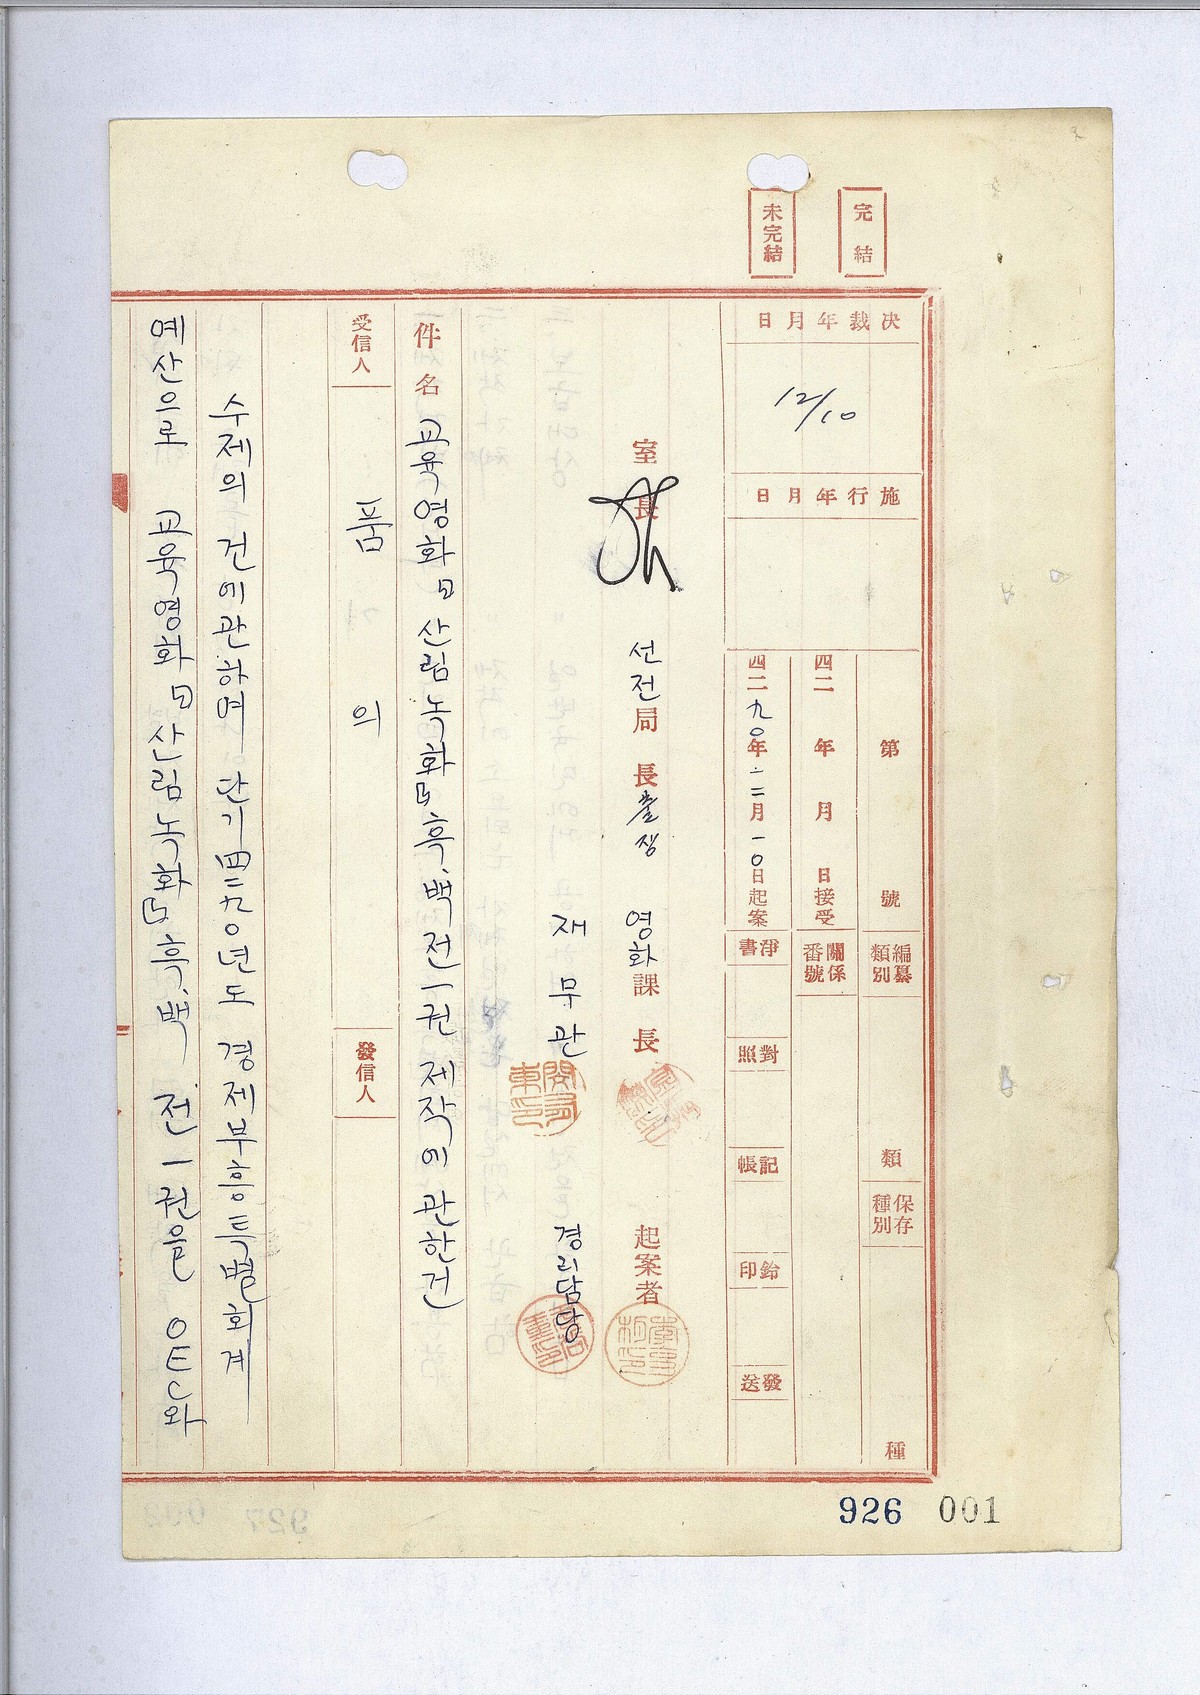 完結
未完結
決裁年月日
12/10
施行年月日
第 號
編纂類別
類
保存種別
種
四二 年 月 日接受
關係番號
四二九〇年 一二月 一〇日起案
淨書
對照
記帳
鈐印
發送
室長
선전局長 출장
영화課長
起案者
재무관
경리담당
件名 교육영화『산림녹화』흑.백 전一권 제작에 관한건
受信人
發信人
품의
수제의 건에관하여 단기四二九〇년도 경제부흥특별회계
예산으로 교육영화『산림녹화』흑.백. 전一권을 OEC와
926 001